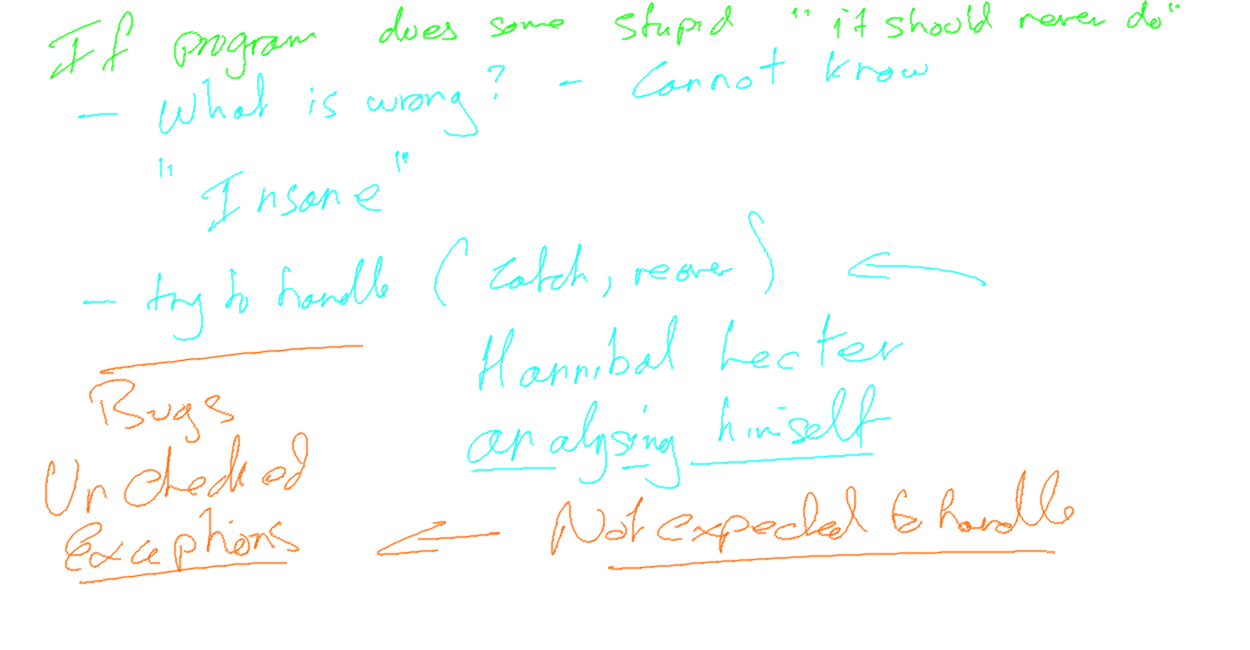 If program does some stupid "it should never do"
- What is wrong? - Cannot know
"Insane"
- try to handle (catch, recover) ←
Hannibal Lecter
analysing himself
Bugs
Unchecked
Exceptions ← Not expected to handle